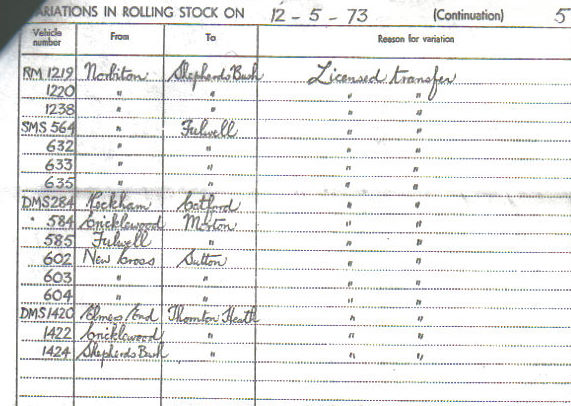 ARIATIONS IN ROLLING STOCK ON 12 - 5 - 73 (Continuation) 5
Vehicle number From To Reason for variation
RM 1219 Norbiton Shepherds Bush Licensed transfer
1220 " " " "
1238 " " " "
SMS 564 " Fulwell " "
632 " " " "
633 " " " "
635 " " " "
DMS284 Peckham Catford " "
* 584 Cricklewood Merton " "
585 Fulwell " " "
602 New Cross Sutton " "
603 " " " "
604 " " " "
DMS1420 Elmers End Thornton Heath " "
1422 Cricklewood " " "
1424 Shepherds Bush " " "